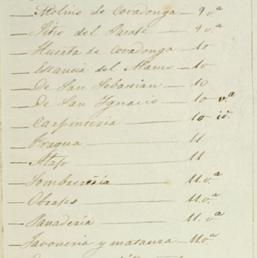 Molino de Covadonga — 9 v.ª
del Parese — 9 v.ª
Huerta de Covadonga — 10
Estancia del Alamo — 10
De San Sebastian — 10
De San Ygnacio — 10 v.ª
Carpinteria — 10 v.ª
Fragua — 11
Atajo — 11
Sombrereria — 11 v.ª
Obrajes — 11 v.ª
Panaderia — 11 v.ª
Javoneria y matanza — 11 v.ª